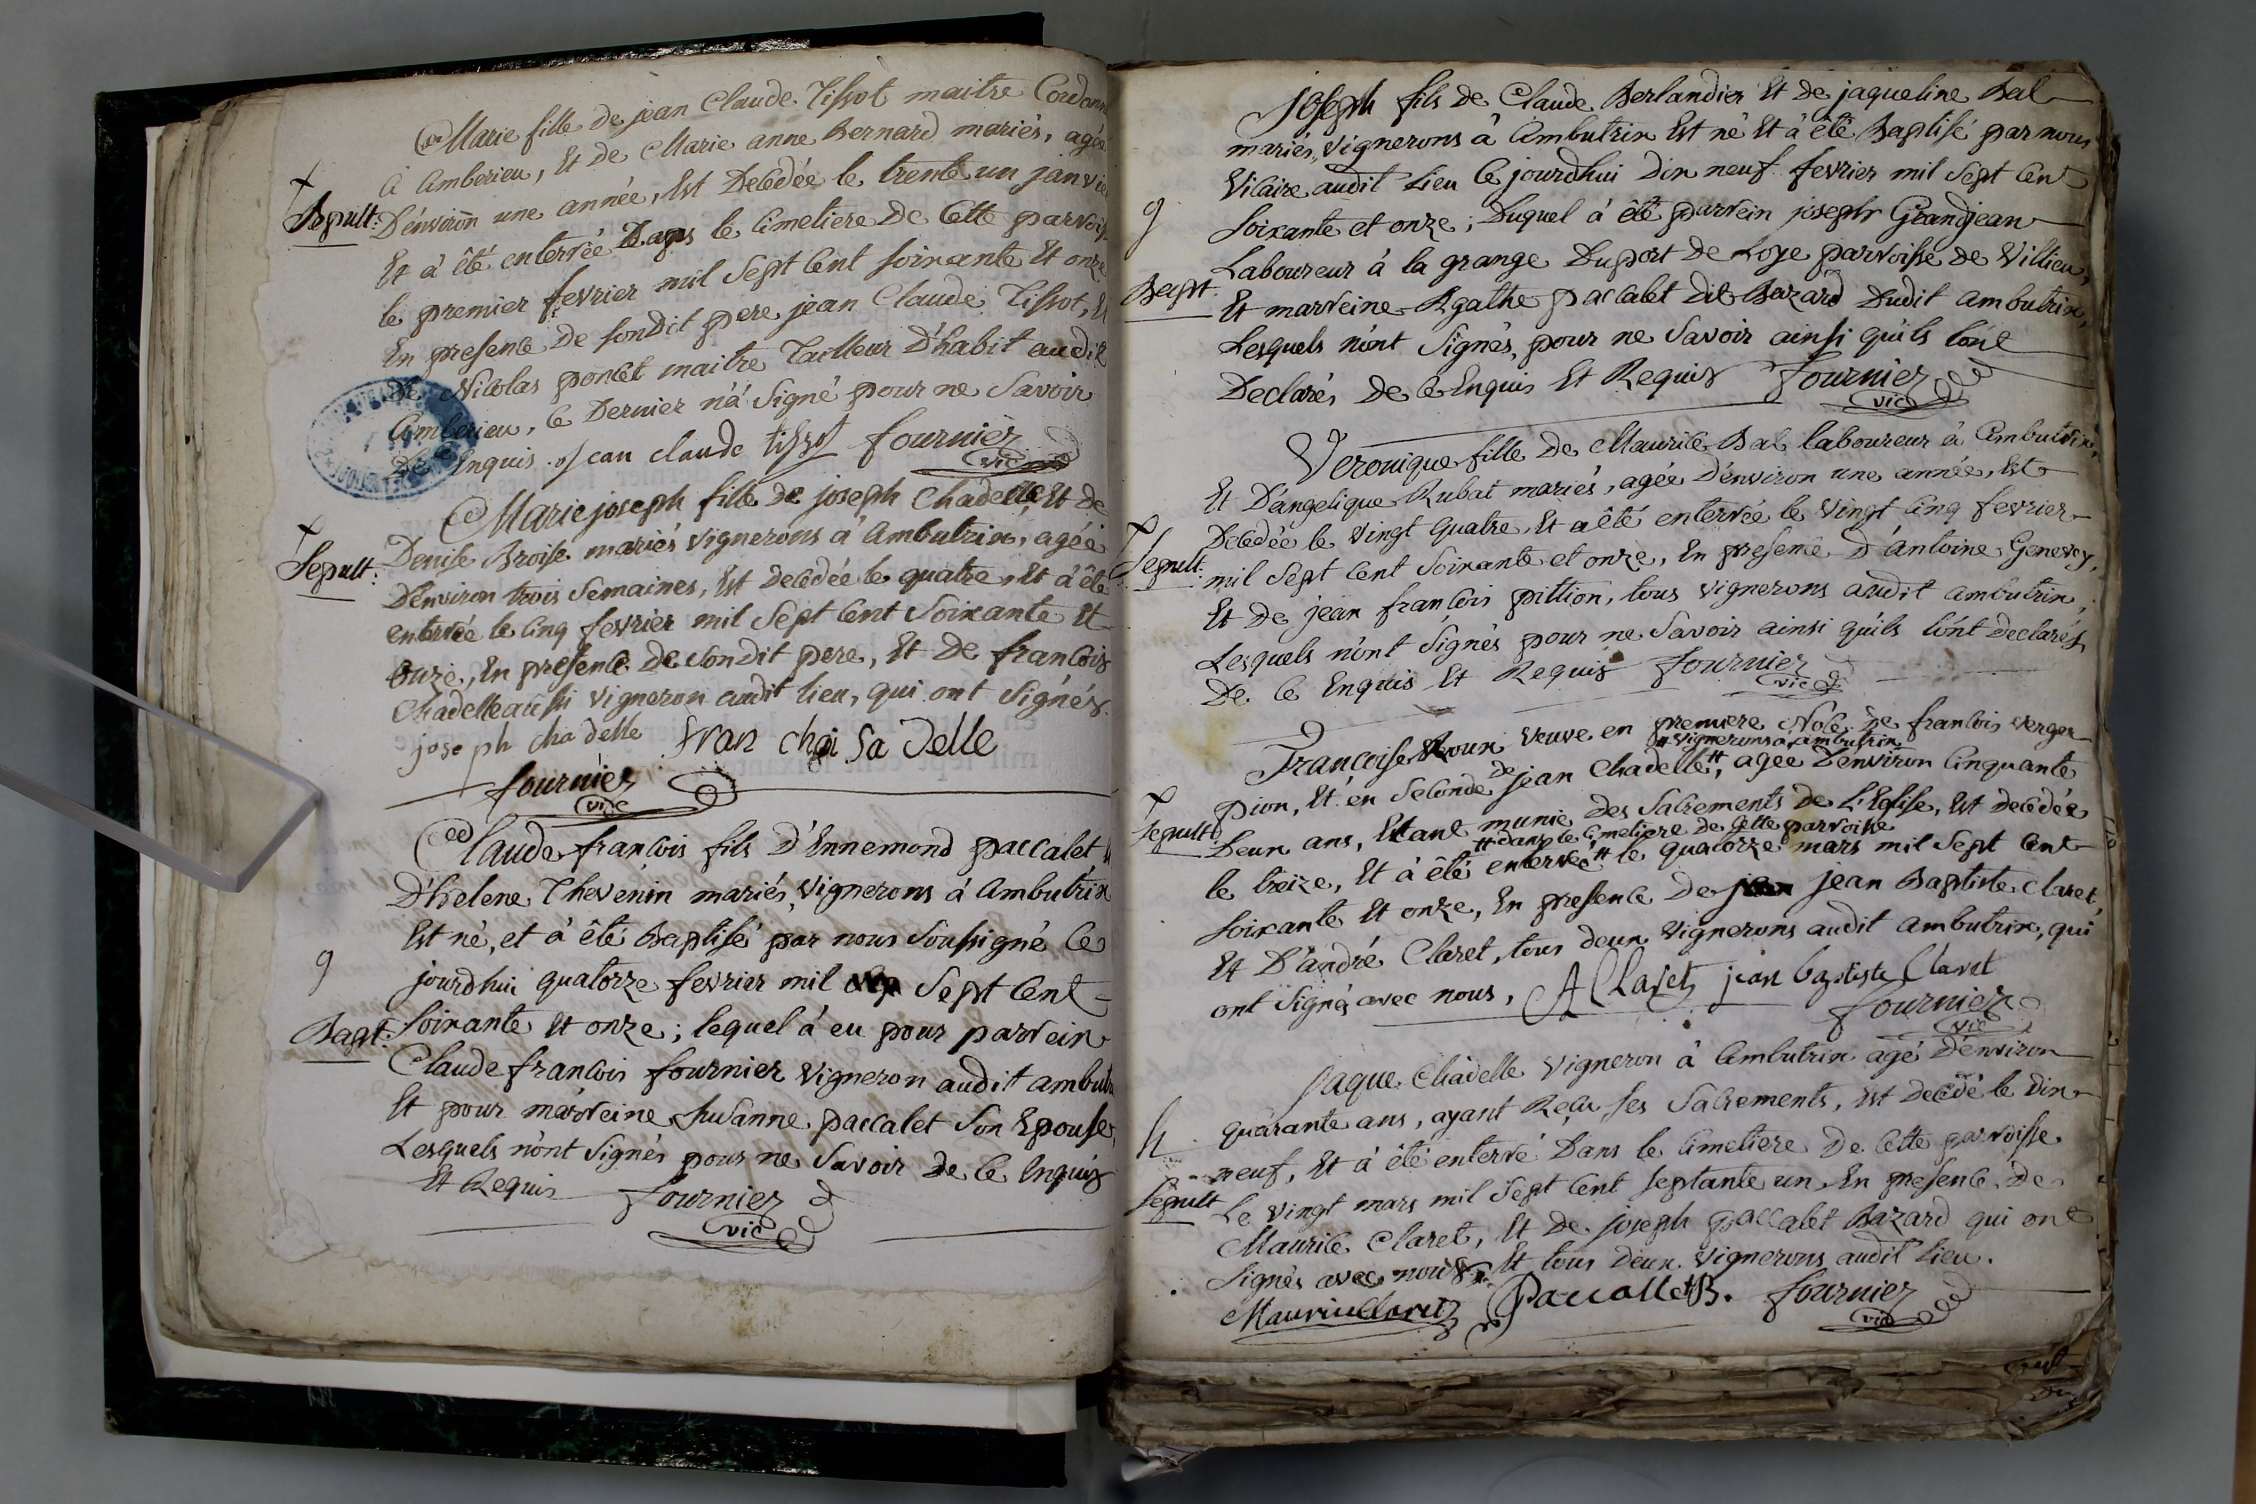 Marie fille de jean Claude Tissot maitre Cordonn
à amberieu, Et de Marie anne Bernard mariés, agée
D'environ une année, Est Decédée le trente un janvie
Sepult:
Et à été enterrée Dans le Cimetiere De Cette parrois
le premier fevrier mil Sept Cent soixante Et onze
En presence De sondit pere jean Claude Tissot, Et
De Nicolas poncet maitre Tailleur D'habit audit
Amberieu, Ce Dernier n'à Signé pour ne Savoir
De Ce Enquis. jean claude tissot fournier
vic
Marie joseph fille de joseph Chadelle, Et de
Denise Broise mariés vignerons à Ambutrix, agée
Sepult:
D'environ trois Semaines, Est decédée le quatre, Et à été
enterrée le Cinq fevrier mil Sept Cent Soixante Et
onze, En presence De sondit pere, Et De francois
Chadelle aussi vigneron audit lieu, qui ont Signés.
joseph chadelle fran choi sa delle
fournier
vic
Claude françois fils D'Ennemond paccalet
D'helene Thevenin mariés, vignerons à Ambutrix
Est né, et à été Baptisé par nous Soussigné Ce
9
jourdhui quatorze fevrier mil Sept Cent
Bapt:
Soixante Et onze; lequel à eu pour parrein
Claude francois fournier vigneron audit ambut
Et pour marreine Susanne paccalet Son Epouse,
Lesquels n'ont Signés pour ne Savoir De Ce Enquis
Et Requis fournier
vic
joseph fils de Claude Berlandier Et de jaqueline Bal
mariés, vignerons à Ambutrix Est né Et à été Baptisé par nous
Vicaire audit Lieu Ce jourdhui Dix neuf fevrier mil Sept Cent
9
Soixante et onze; Duquel à été parrein joseph Grandjean
Laboureur à la grange Duport de Loye parroisse de Villieu,
Bapt.
Et marreine Agathe paccalet dit Bazard Dudit ambutrix,
Lesquels n'ont Signés, pour ne Savoir ainsi qu'ils l'ont
Declarés De Ce Enquis Et Requis fournier
vic
Veronique fille De Maurice Bal laboureur à Ambutrix,
Et D'angelique Rubat mariés, agée D'environ une année, Est
Decédée le vingt quatre, Et a été enterrée le vingt Cinq fevrier
Sepult:
mil Sept Cent Soixante et onze, En presence D'antoine Genevey,
Et De jean francois pittion, tous vignerons audit ambutrix,
Lesquels n'ont Signés pour ne Savoir ainsi qu'ils l'ont declarés
De Ce Enquis Et Requis fournier
vic
Françoise Roux veuve en premiere Noce De francois verger
# vignerons à ambutrix
pion, Et en Seconde de jean Chadelle #, agée D'environ Cinquante
Sepult:
Deux ans, Etant munie des Sacrements De L'Eglise, Est decédée
# dans le Cimetiere de Cette parroisse
le treize, Et à été enterrée # le quatorze mars mil Sept Cent
soixante Et onze, En presence De jean Baptiste Claret,
Et D'andré Claret, tous deux vignerons audit ambutrix, qui
ont Signés avec nous, A Claret jean baptiste Claret
fournier
vic
Jaque Chadelle vigneron à Ambutrix agé D'environ
quarante ans, ayant Reçu ses Sacrements, Est Decédé le Dix
neuf, Et à été enterré Dans le Cimetiere De Cette parroisse
Sepult
Le vingt mars mil Sept Cent septante un En presence De
Maurice Claret, Et De joseph paccalet Bazard qui ont
Signés avec nous, Et tous Deux vignerons audit Lieu.
Maurice Claret Paccallet B. fournier
vic